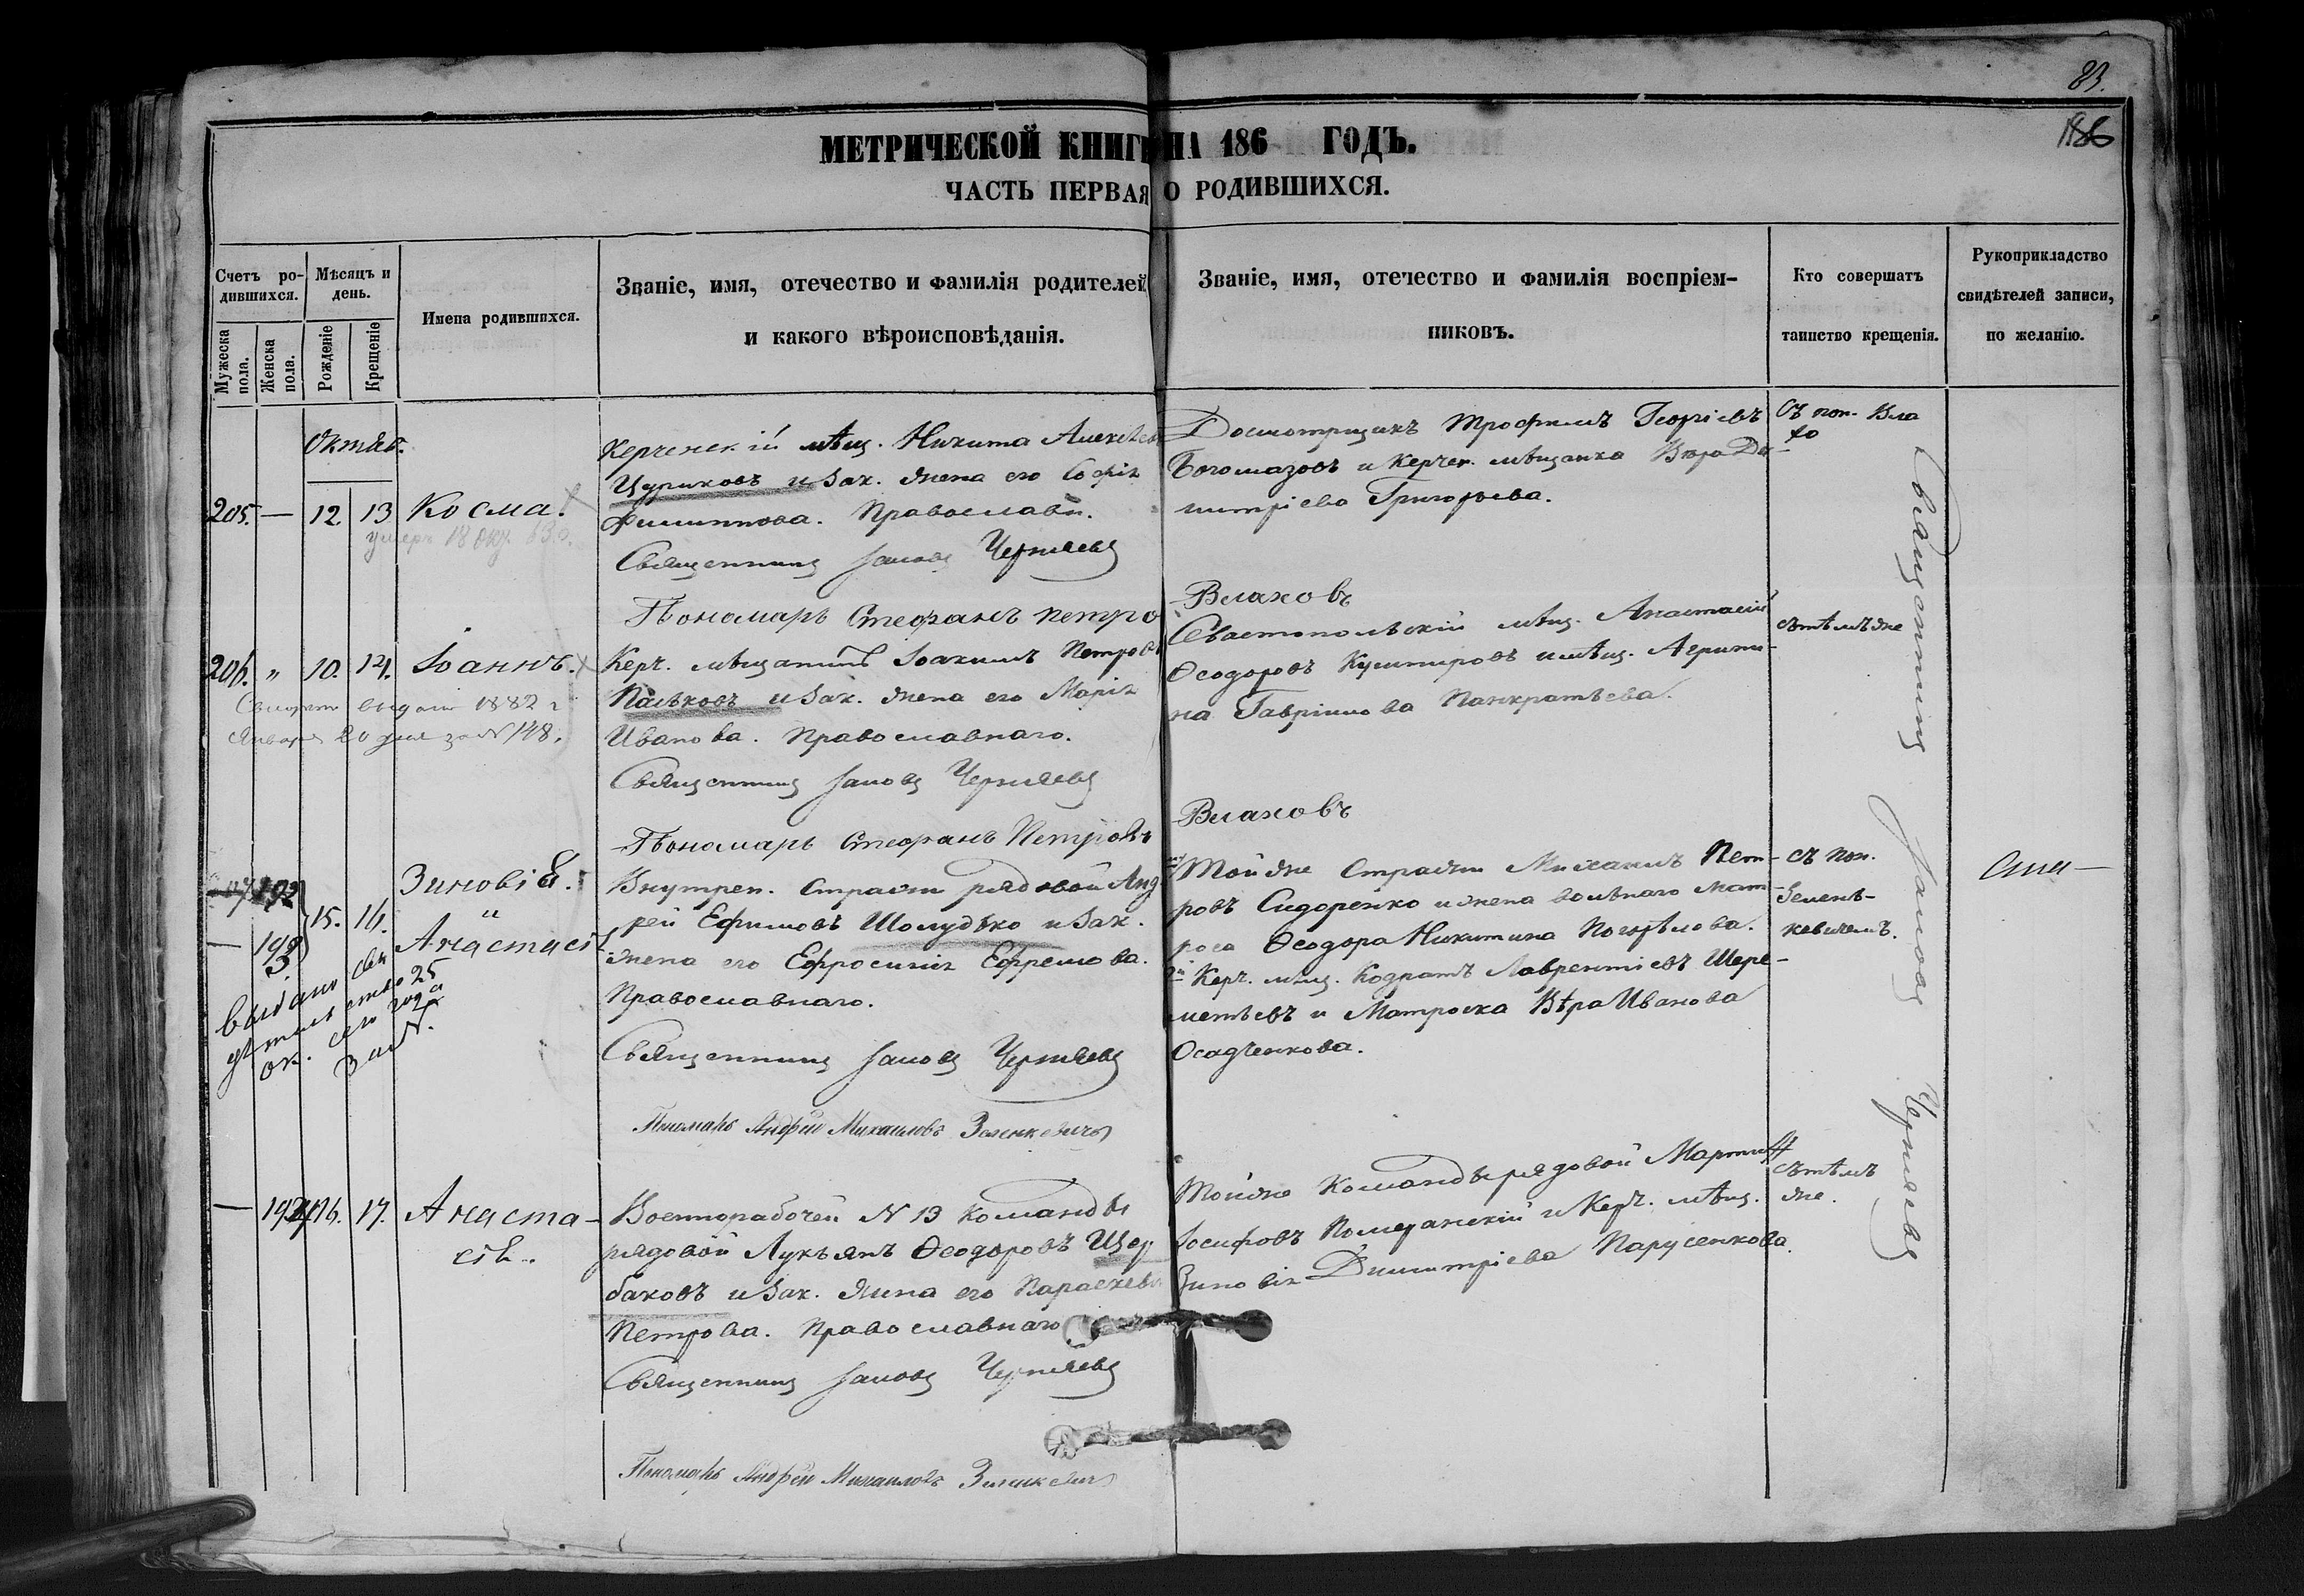 83.
186
МЕТРИЧЕСКОЙ КНИГИ НА 186 ГОДЪ.
ЧАСТЬ ПЕРВАЯ О РОДИВШИХСЯ.
Счетъ родившихся.
Мужеска пола.
Женска пола.
Мѣсяцъ и день.
Рожденіе
Крещеніе
Имена родившихся.
Званіе, имя, отечество и фамилія родителей
и какого вѣроисповѣданія.
Званіе, имя, отечество и фамилія воспріем-
никовъ.
Кто совершатъ
таинство крещенія.
Рукоприкладство
свидѣтелей записи,
по желанію.
Октяб.
205. — 12. 13 Косма.
умеръ 18 окт.
Керченскій мѣщ. Никита Алексѣев
Цуриковъ и зак. жена его Софія
Филиппова. Православн.
Священникъ Іаковъ Черняевъ
Пономарь Стефанъ Петро
Досмотрщикъ Трофимъ Георгіевъ
Богомазовъ и Керчен. мѣщанка Вѣра Ди-
митріева Григорьева.
Съ пон. Вла
хо
Влаховъ
206. " 10. 14. Іоаннъ.
Свидѣт выдано 1882 г
Января 20 дня за N 148.
Керч. мѣщанинъ Іоакимъ Петровъ
Пальковъ и зак. жена его Марія
Иванова. Православнаго.
Священникъ Іаковъ Черняевъ
Пономарь Стефанъ Петровъ
Севастопольскій мѣщ. Анастасій
Ѳеодоровъ Кушнировъ и мѣщ. Агрипи-
на Гавріилова Панкратьева.
съ тѣмъ же
Влаховъ
192 15. 16. Зиновія.
"
— 193 Анастасія
Выдано сви
дѣтельство 25
ок. сего года
за N.
Внутрен. Стражи рядовой Анд
рей Ефимовъ Шолудько и зак.
жена его Ефросинія Ефремова.
Православнаго.
Священникъ Іаковъ Черняевъ
Пономарь Андрей Михаиловъ Зеленкевичъ
Той же Стражи Михаилъ Пет-
ровъ Сидоренко и жена вольнаго мат-
роса Ѳеодора Никитина Погорѣлова.
2й Керч. мѣщ. Кодратъ Лаврентіевъ Шере-
метьевъ и Матроска Вѣра Иванова
Осадченкова.
съ пон.
Зелень-
кевичемъ.
— 194 16. 17. Анаста-
сія.
Военнорабочей N 13 Команды
рядовой Лукьянъ Ѳеодоровъ Щер
баковъ и зак. жена его Параскева
Петрова. Православнаго
Священникъ Іаковъ Черняевъ
Пономарь Андрей Михаиловъ Зеленкевичъ
Той же Команды рядовой Мартинъ
Іосифовъ Померанскій и Керч. мѣщ.
Зиновія Димитріева Парусенкова.
съ тѣмъ
же.
Священникъ Іаковъ Черняевъ